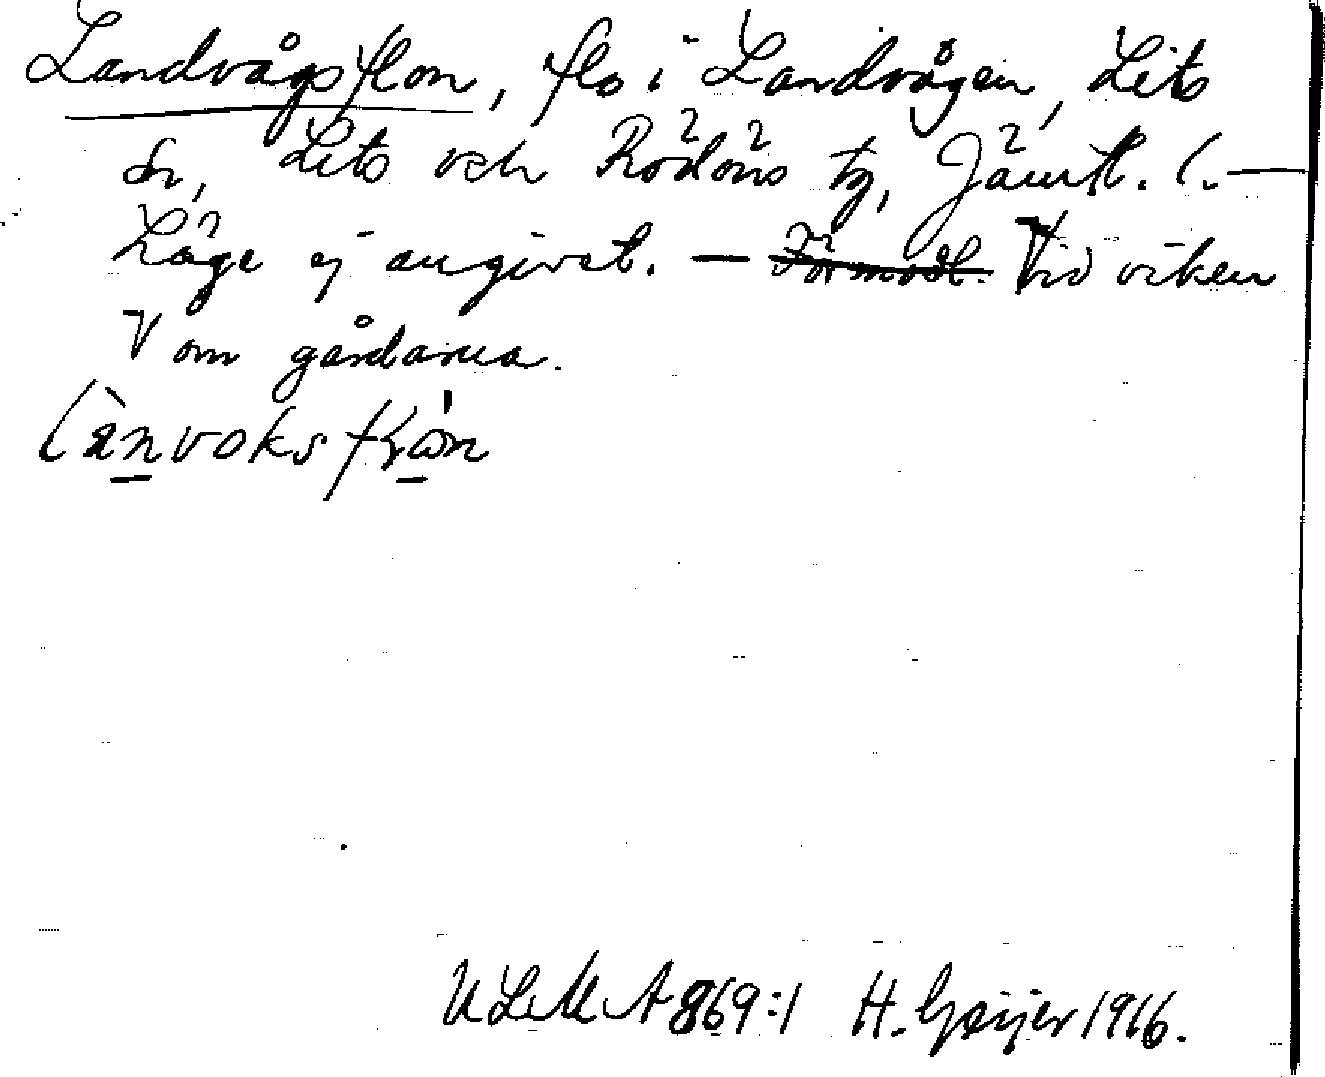 Landvågsflon, flo i Landvågen, Lits
sn, Lits och Rödöns tg, Jämtl. (.—
Läge ej angivet. — Förmodl. Vid viken
V om gårdarna.
ULMA 869:1 H. Geijer 1916.